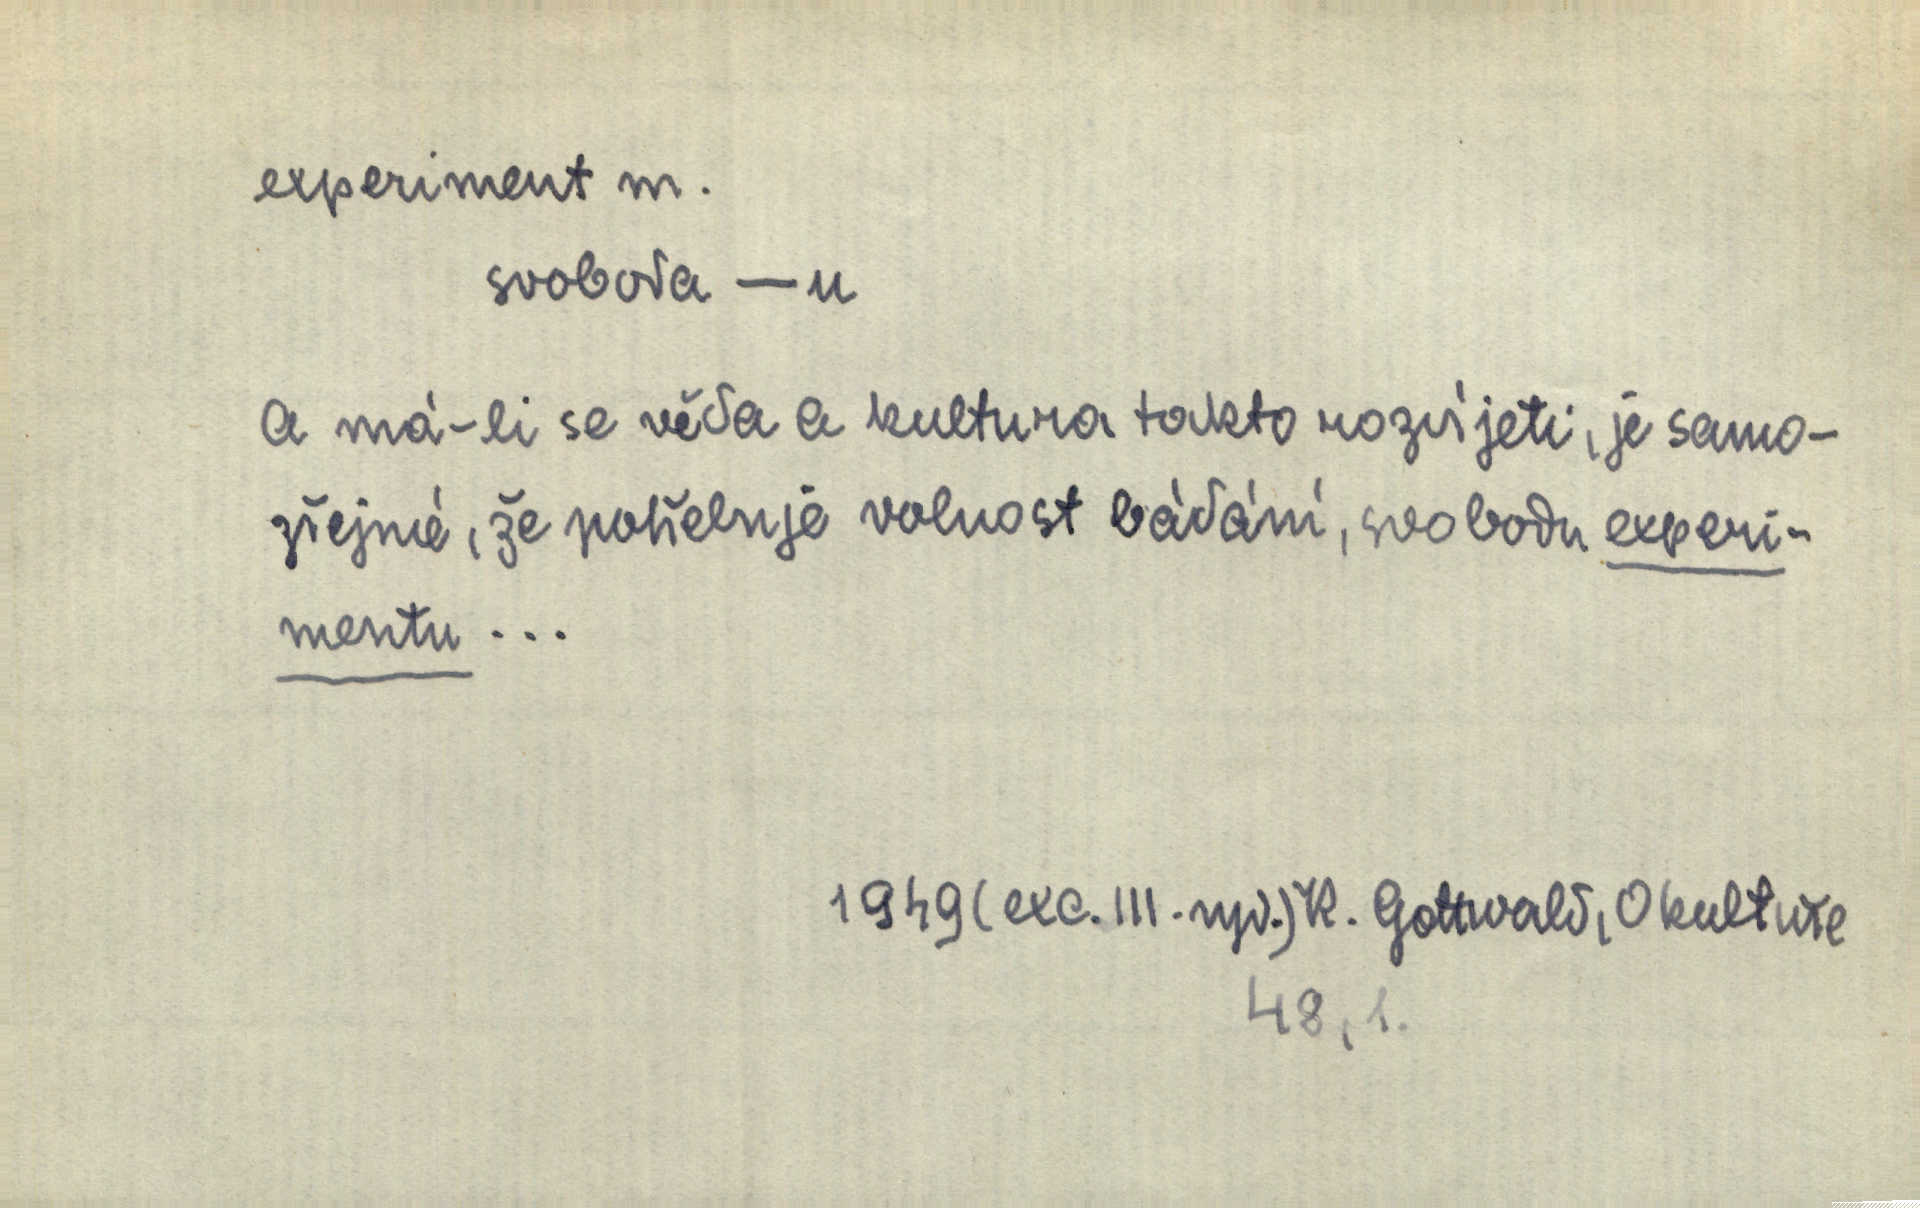 experiment m.
svoboda — u
A má-li se věda a kultura takto rozvíjeti, je samo-
zřejmé, že potřebuje volnost bádání, svobodu experi-
mentu ...
1949 (exc. III. vyd.) K. Gottwald, O kultuře
48, 1.